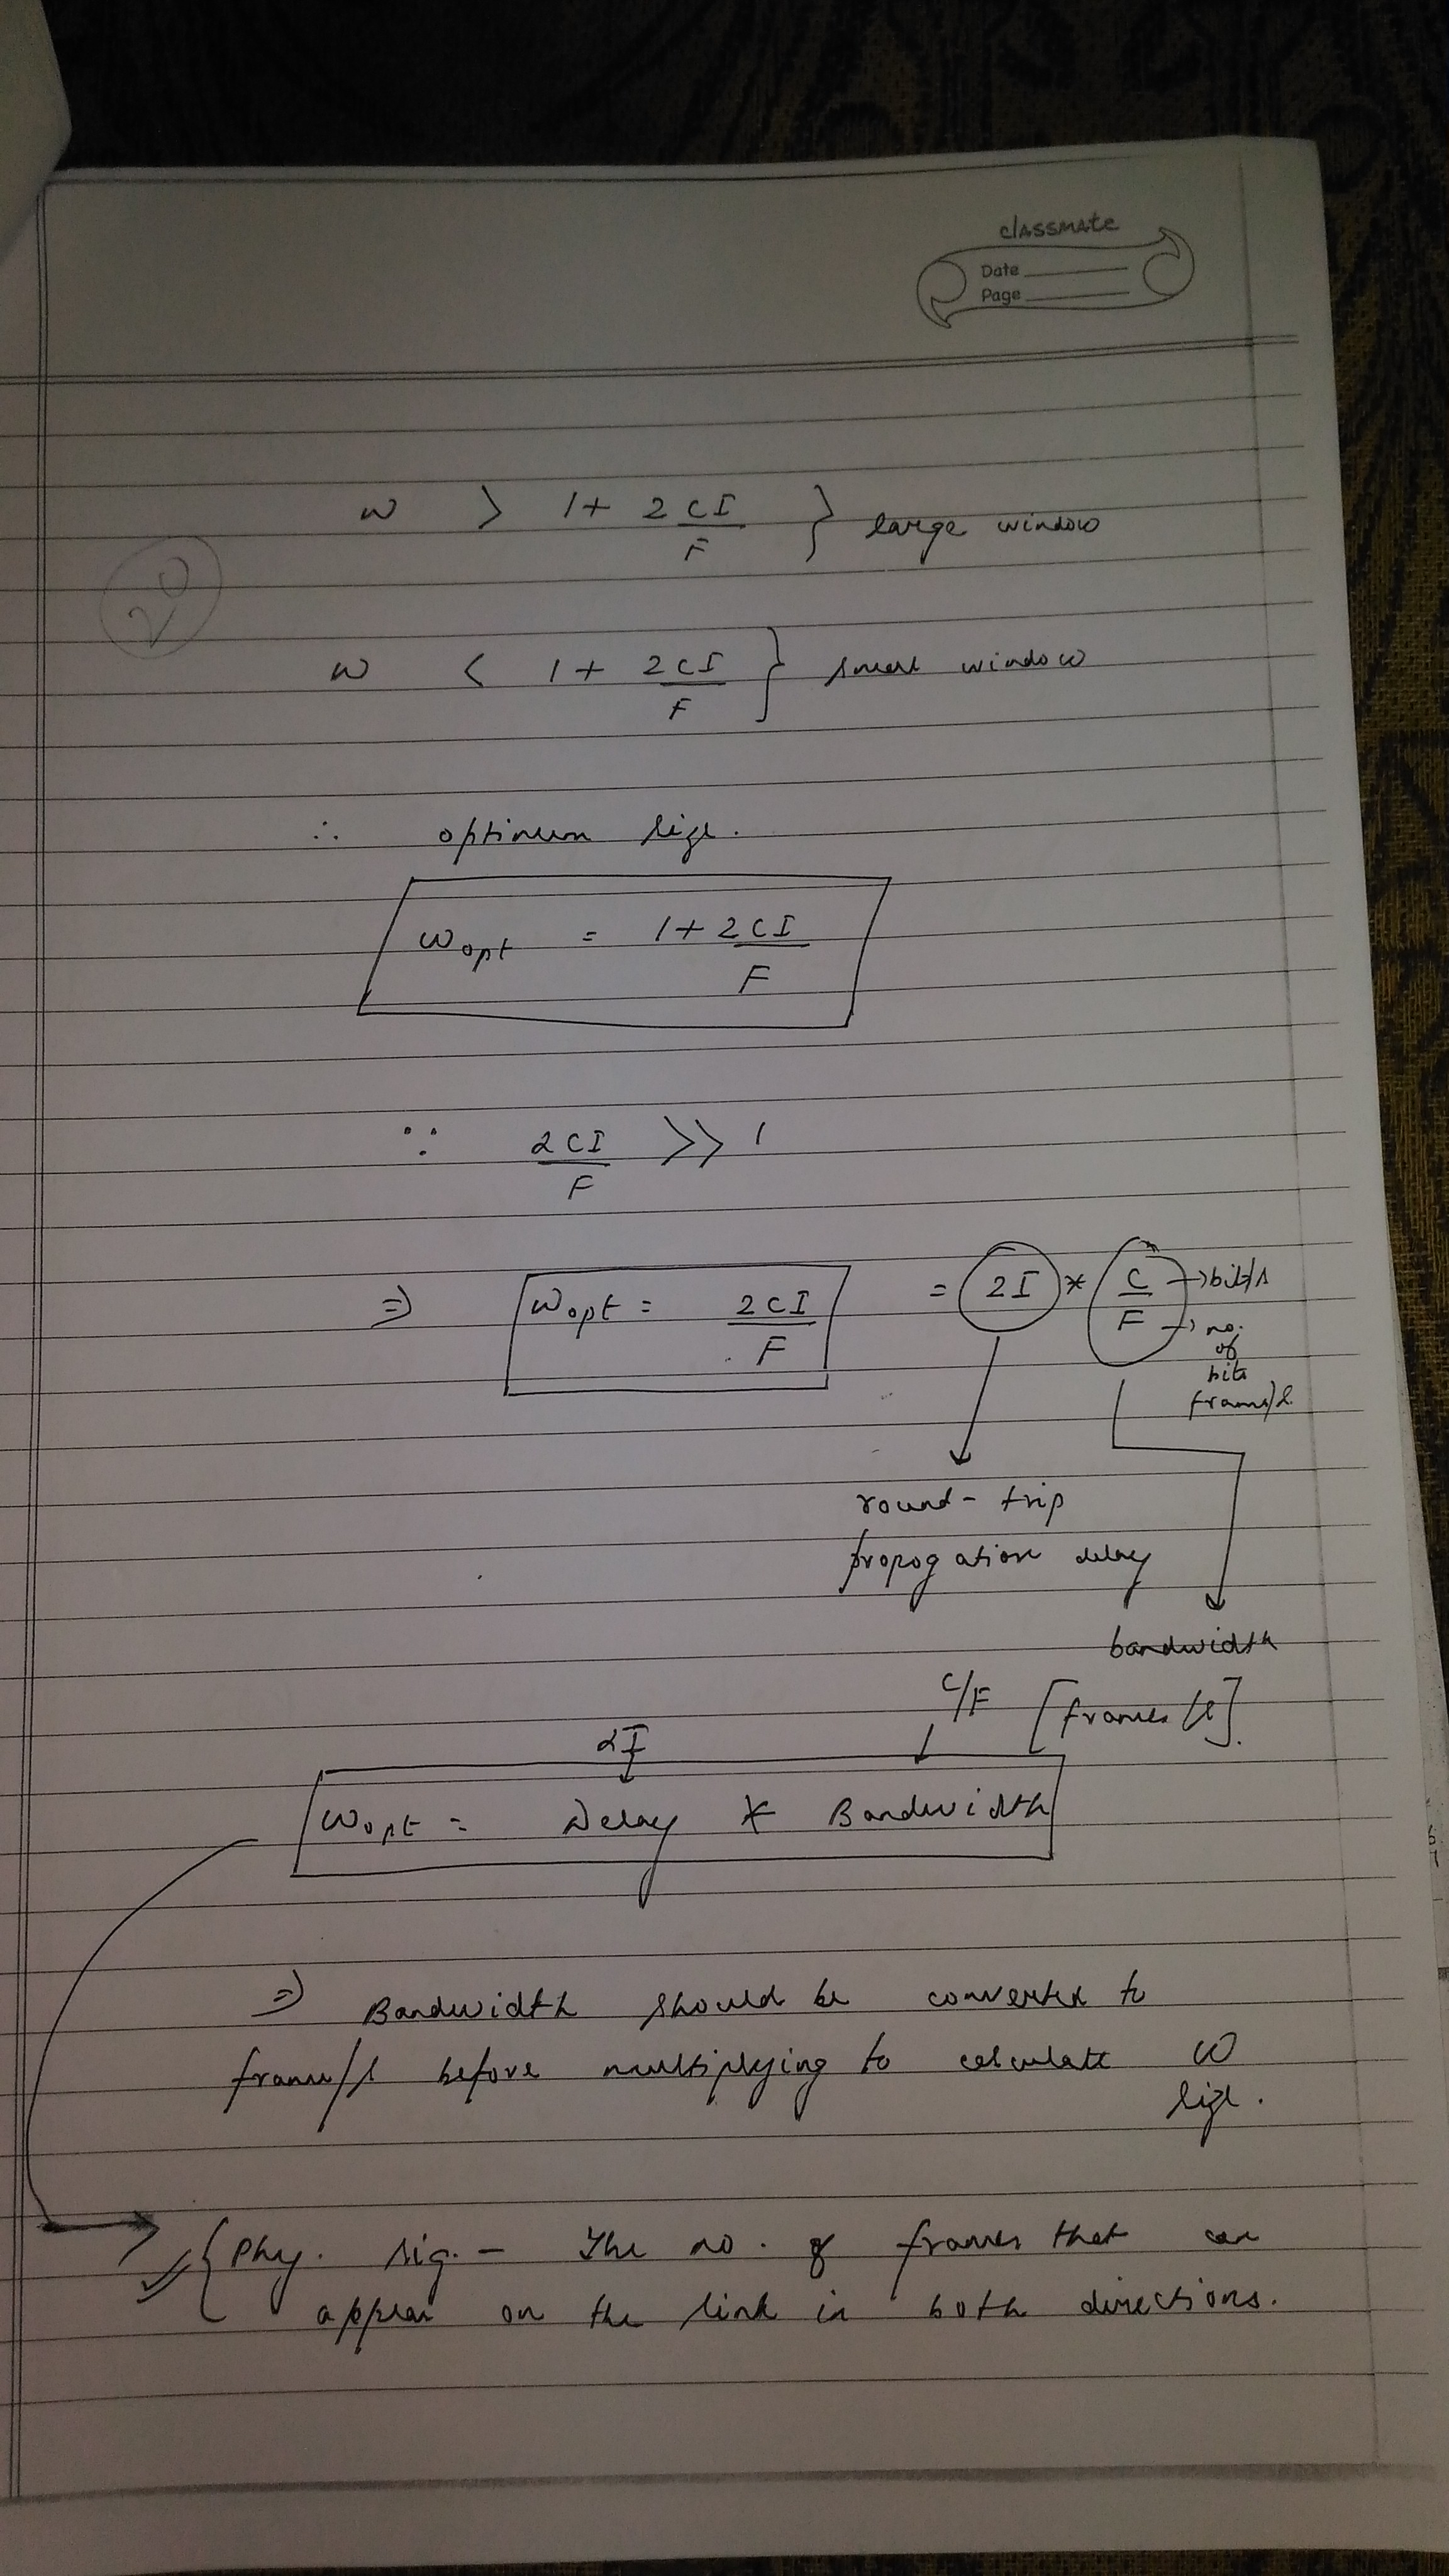 classmate
Date
Page
20
w > 1 + 2CI/F } large window
w < 1 + 2CI/F } small window
∴ optimum size.
Wopt = 1 + 2CI/F
∵ 2CI/F >> 1
⇒ Wopt = 2CI/F = 2I * C/F → bits/s
→ no.
of
bits
frame/s.
round-trip
propogation delay
bandwidth
C/F [frames/s].
2I
Wopt = Delay * Bandwidth
⇒ Bandwidth should be converted to
frame/s before multiplying to calculate W
size.
Phy. sig. - The no. of frames that can
appear on the link in both directions.